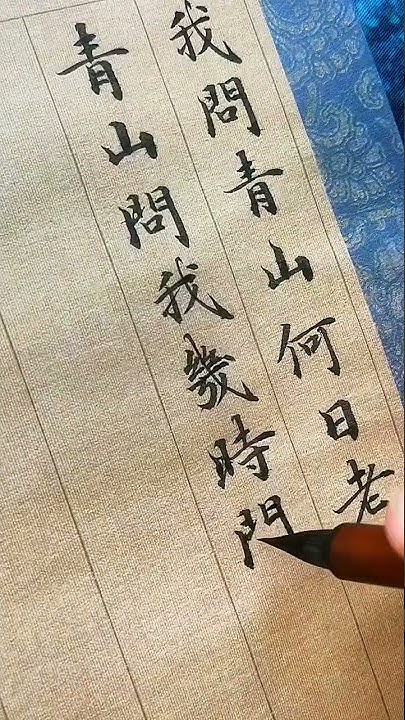 我問青山何日老
青山問我幾時門